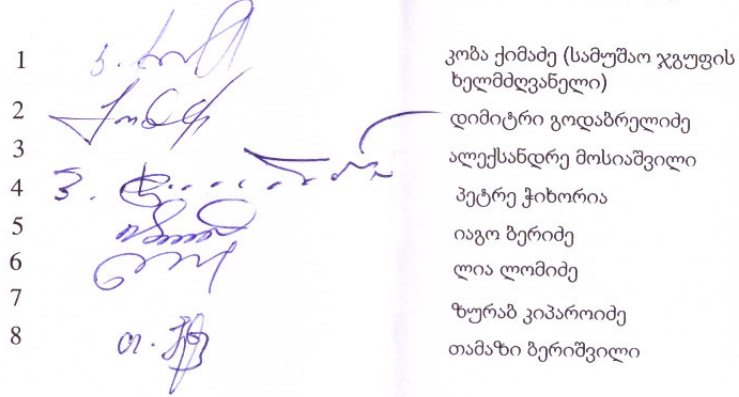 1 კობა ქიმაძე (სამუშაო ჯგუფის
ხელმძღვანელი)
2 დიმიტრი გოდაბრელიძე
3 ალექსანდრე მოსიაშვილი
4 პეტრე ჭიხორია
5 იაგო ბერიძე
6 ლია ლომიძე
7 ზურაბ კიპაროიძე
8 თამაზი ბერიშვილი